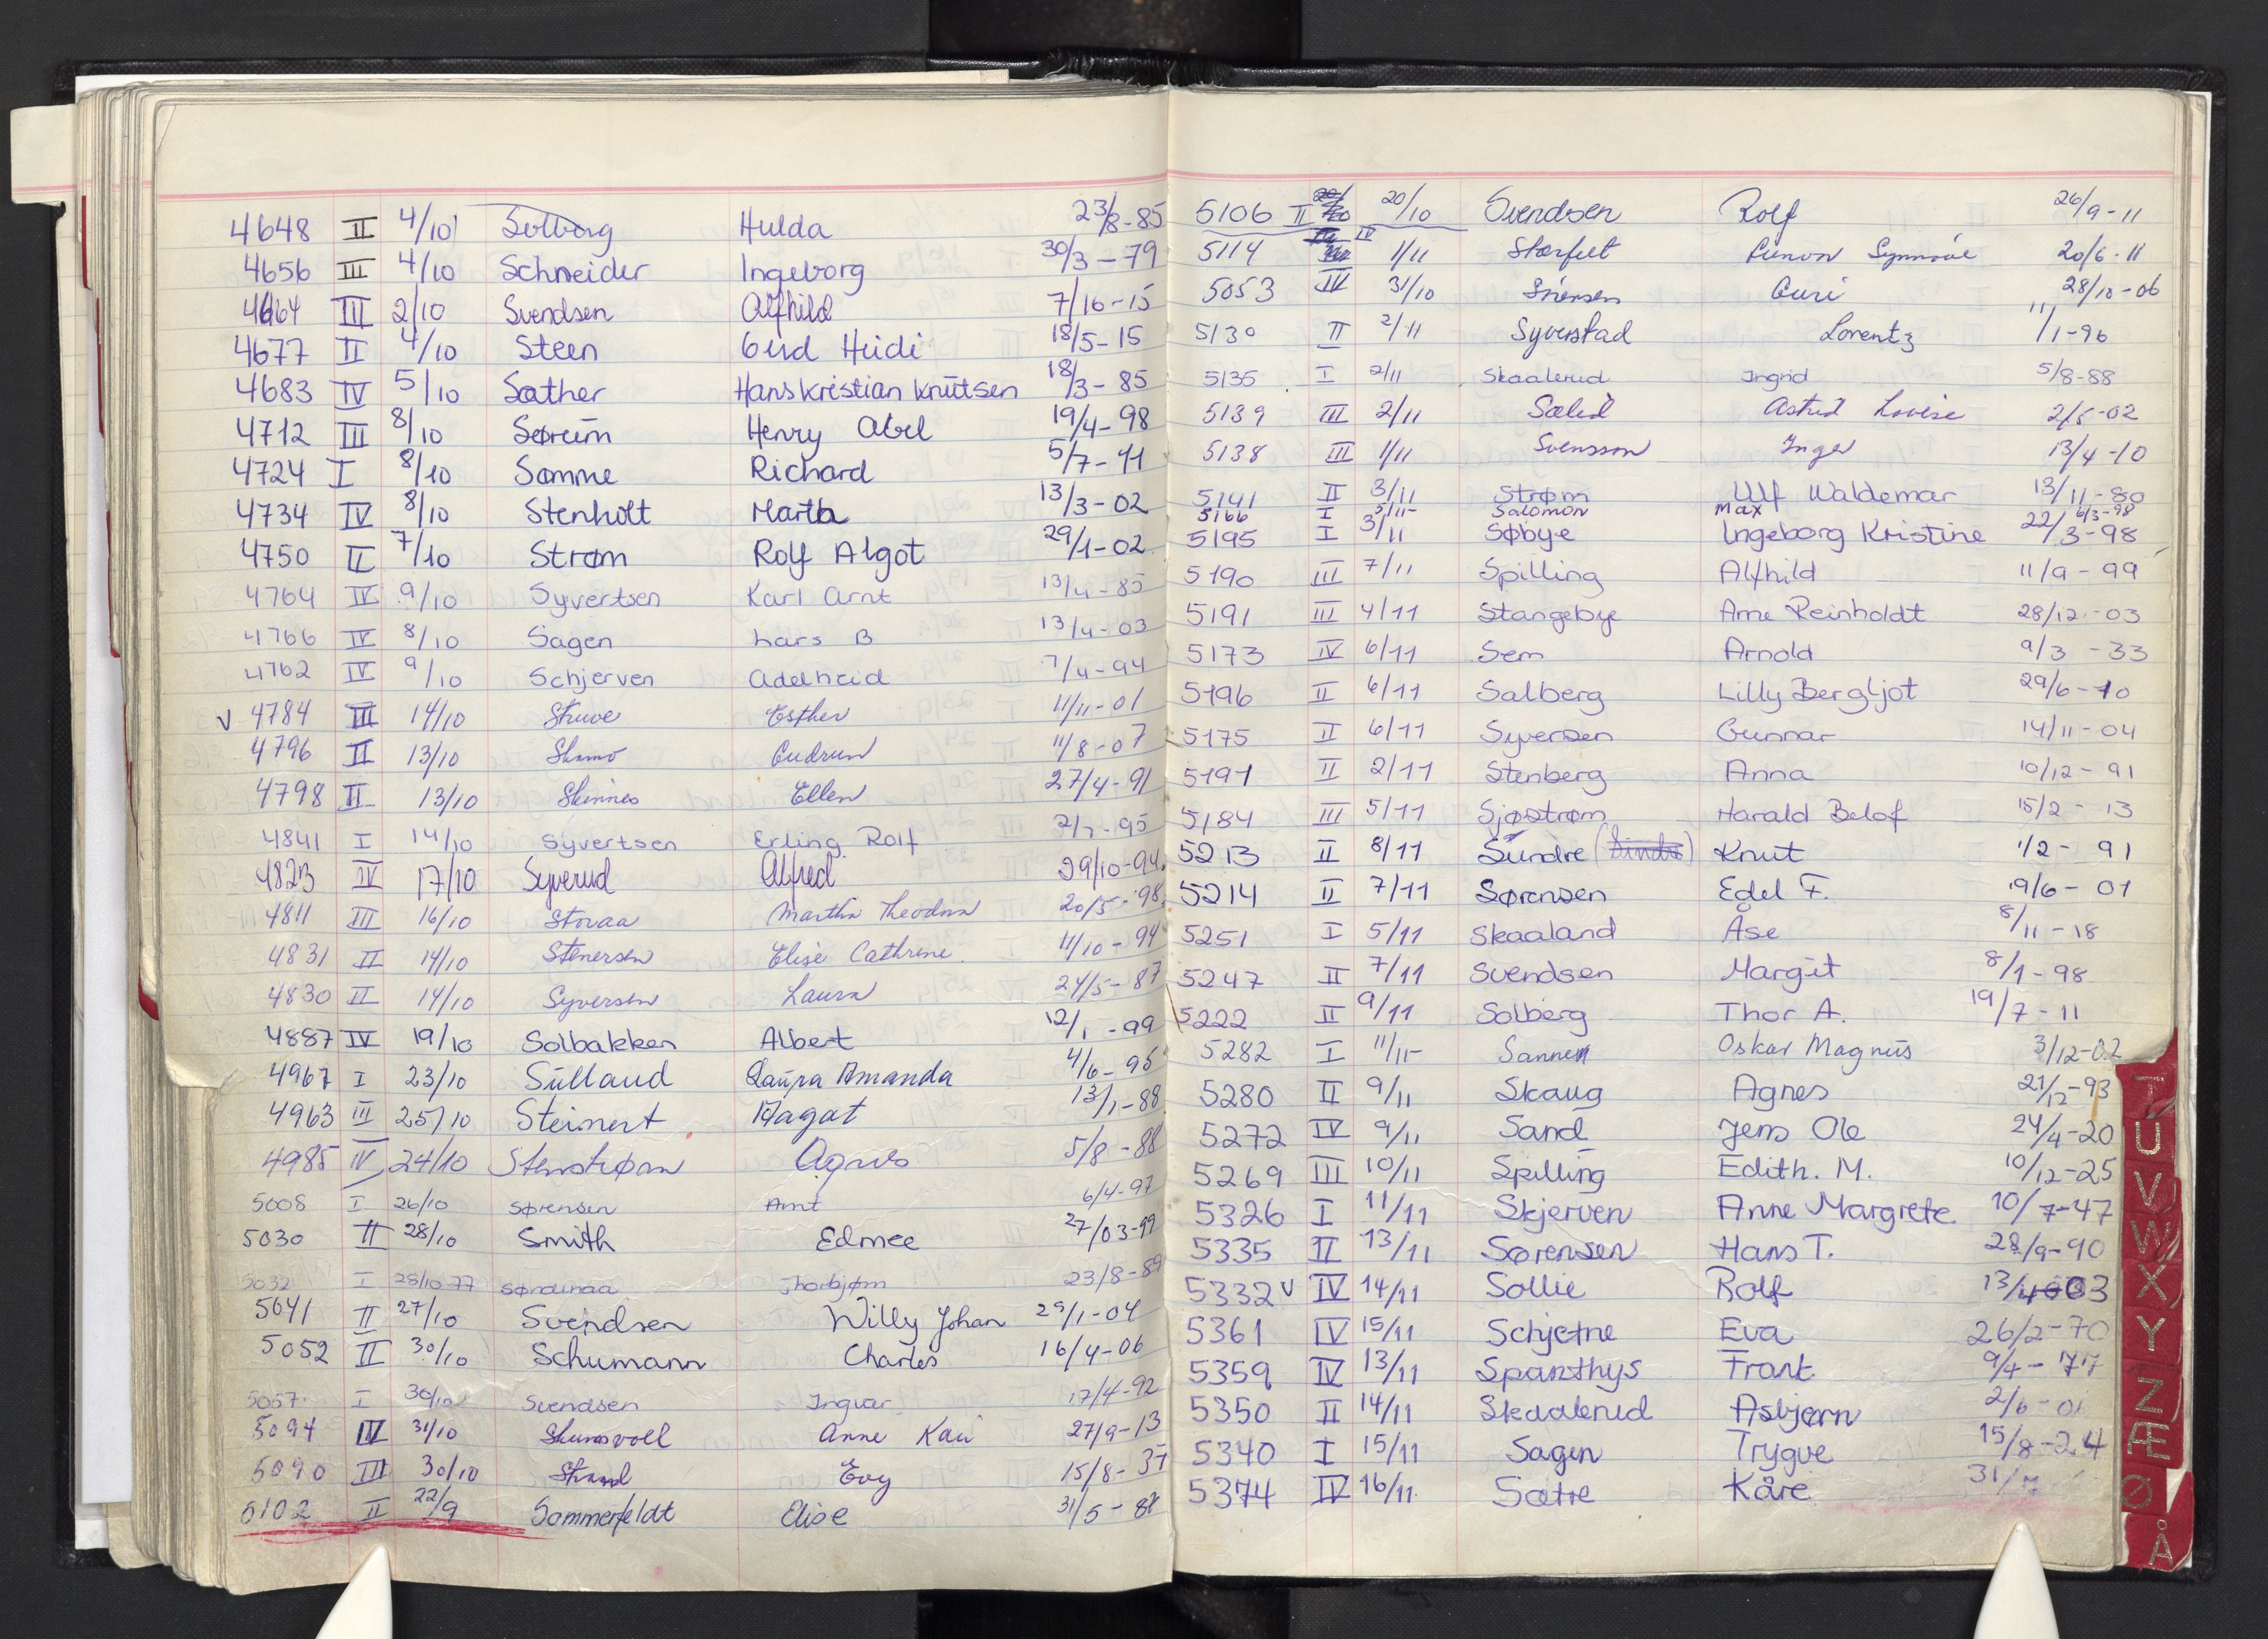 4648 II 4/10 Solberg Hulda 23/8-85
4656 III 4/10 Schneider Ingeborg 30/3-79
4664 III 2/10 Svendsen Alfhild 7/10-15
4677 II 4/10 Steen Gerd Heidi 18/5-15
4683 IV 5/10 Sæther Hans Kristian Knutsen 18/3-85
4712 III 8/10 Sørum Henry Abel 19/4-98
4724 I 8/10 Somme Richard 5/7-11
4734 IV 8/10 Stenholt Marta 13/3-02
4750 II 7/10 Strøm Rolf Algot 29/1-02
4764 IV 9/10 Syvertsen Karl Arnt 13/4-85
4766 IV 8/10 Sagen Lars B 13/4-03
4762 IV 9/10 Schjerven Adelheid 7/4-94
v 4784 III 14/10 Struve Esther 11/11-01
4796 II 13/10 Gudrun 11/8-07
4798 II 13/10 Skinnes Ellen 27/4-91
4841 I 14/10 Syvertsen Erling Rolf 2/7-95
4823 IV 17/10 Syverud Alfred 29/10-94
4811 III 16/10 Stovaa Martha Theodora 20/5-98
4831 II 14/10 Stenersen Elise Cathrine. 11/10-94
4830 II 14/10 Syversen Laura 24/5-87
4887 IV 19/10 Solbakken Albert 12/1-99
4967 I 23/10 Sulland Laura Amanda 4/6-95
4963 III 25/10 Steinert Magat 13/1-88
4985 IV 24/10 Stenstrøm Agnes 5/8-88
5008 I 26/10 Sørensen Arnt 6/4-97
5030 II 28/10 Smith Edmee 27/03-99
5032 I 28/10-77 Søndenaa Thorbjørn 23/8-89
5041 II 27/10 Svendsen Willy Johan 29/1-04
5052 II 30/10 Schumann Charles 16/4-06
5057 I 30/10 Svendsen Ingvar 17/4-92
5094 IV 31/10 Skumsvoll Anne Kari 27/9-13
5090 III 30/10 Strand Evy 15/8-37
5102 II 22/9 Sommerfeldt Elise 31/5-88
5106 II 20/10 Svendsen Rolf 26/9-11
5114 IV 1/11 Storfelt Synnøve 20/6-11
5053 IV 31/10 Sørensen Guri 28/10-06
5130 II 2/11 Syverstad Lorentz 11/1-96
5135 I 2/11 Skaalerud Ingrid 5/8-88
5139 III 2/11 Sælid Astrid Lovise 2/5-02
5138 III 1/11 Svensson Inger 13/4-10
5141 II 3/11 Strøm Ulf Waldemar 13/11-80
5166 I 5/11- Salomon Max 6/3-98
5195 I 3/11 Søbye Ingeborg Kristine 22/3-98
5190 III 7/11 Spilling Alfhild 11/9-99
5191 III 4/11 Stangebye Arne Reinholdt 28/12-03
5173 IV 6/11 Sem Arnold 9/3-33
5196 II 6/11 Salberg Lilly Bergljot 29/6-10
5175 II 6/11 Syversen Gunnar 14/11-04
5191 II 2/11 Stenberg Anna 10/12-91
5184 III 5/11 Sjøstrøm Harald Belof 15/2-13
5213 II 8/11 Sundre (Sindre) Knut 1/2-91
5214 II 7/11 Sørensen Edel F. 19/6-01
5251 I 5/11 Skaaland Åse 8/11-18
5247 II 7/11 Svendsen Margit 8/1-98
5222 II 9/11 Solberg Thor A. 19/7-11
5282 I 11/11- Sannem Oskar Magnus 3/12-02
5280 II 9/11 Skaug Agnes 21/12-93
5272 IV 9/11 Sand Jens Ole 24/4-20
5269 III 10/11 Spilling Edith. M. 10/12-25
5326 I 11/11 Skjerven Anne Margrete. 10/7-47
5335 II 13/11 Sørensen Hans T. 28/9-90
5332 v IV 14/11 Sollie Rolf 13/4-03
5361 IV 15/11 Schjetne Eva 26/2-70
5359 IV 13/11 Sparthys Frank 9/4-77
5350 II 14/11 Skaalerud Asbjørn 2/6-01
5340 I 15/11 Sagen Trygve 15/8-24
5374 IV 16/11 Sætre Kåre 31/
T
U
V
W
X
Y
Z
Æ
Ø
Å